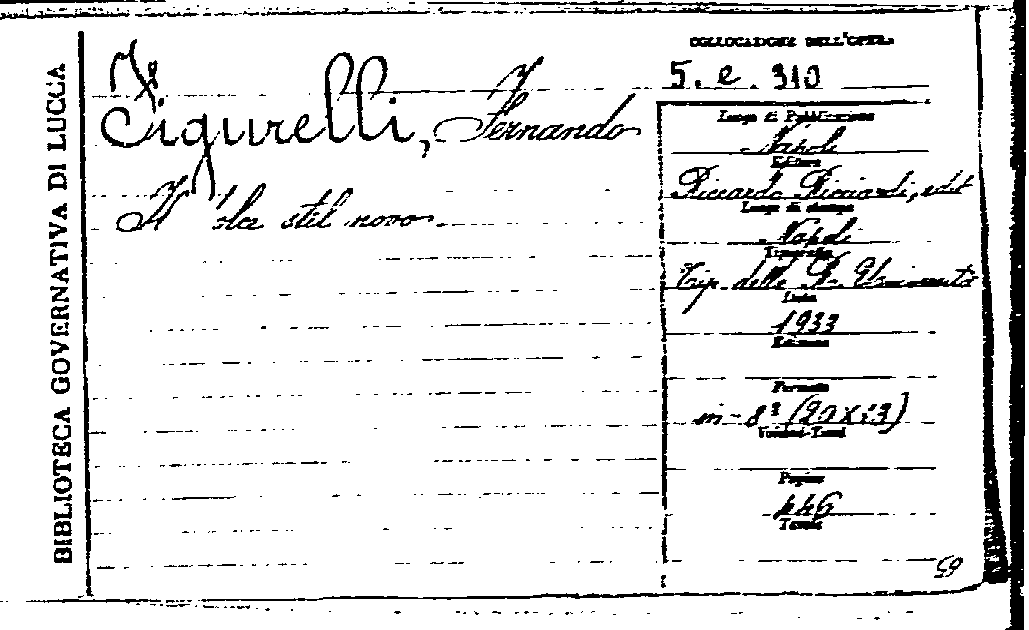 BIBLIOTECA GOVERNATIVA DI LUCCA
COLLOCAZIONE DELL'OPERA
5. e. 310
Figurelli, Fernando
Il dolce stil novo.
Luogo di Pubblicazione
Napoli
Editore
Riccardo Ricciardi, edit
Luogo di stampa
Napoli
Tipografia
Tip. della R. Università
Data
1933
Edizione
Formato
in-8º (20x13)
Volumi-Tomi
Pagine
446
Tavole
59